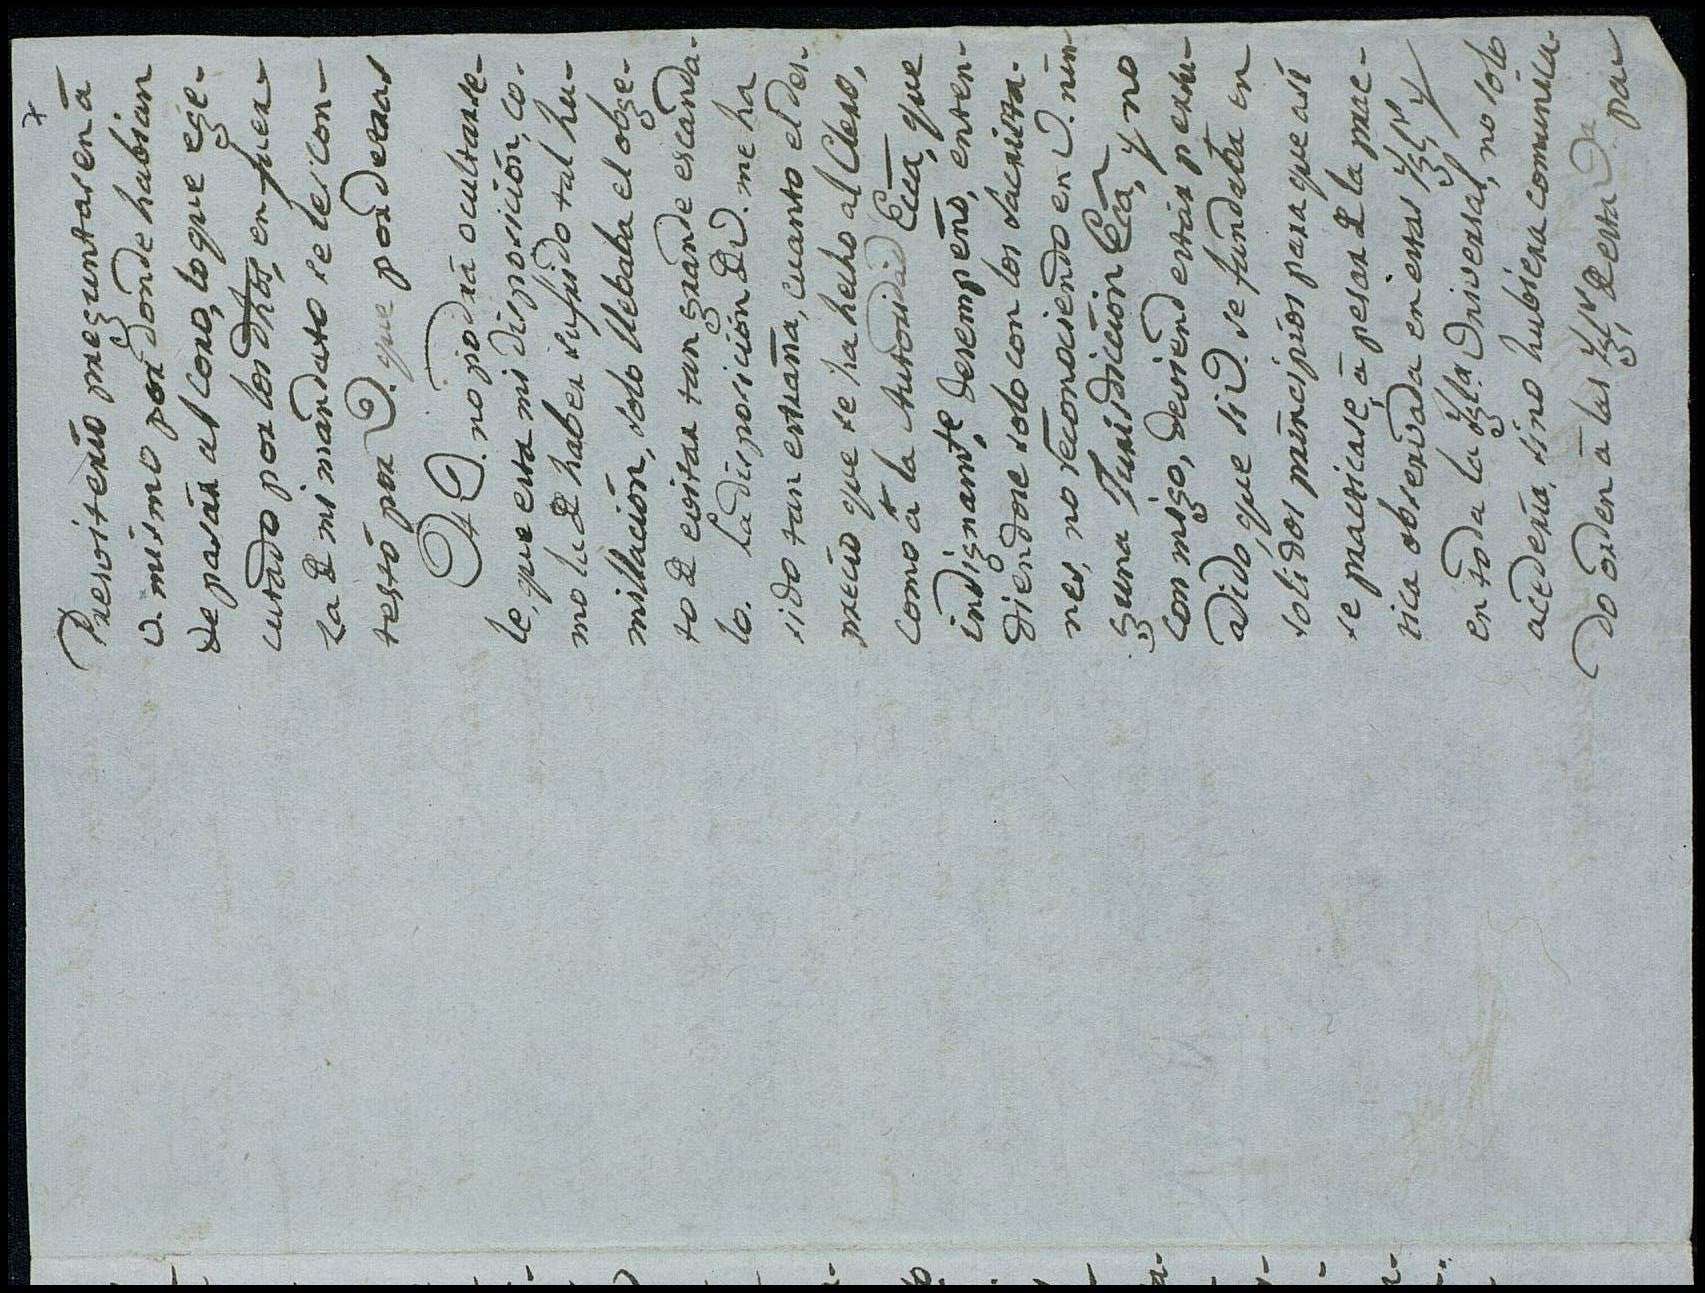 Presviterio preguntasen á
V. mismo por donde habian
de pasar al Coro, lo que ege-
cutado por los dhos, en fuer-
za de mi mandato se les con-
testó por V. que por detras
A V. no podrá ocultarse-
le, que esta mi disposicion, co-
mo la de haber sufrido tal hu-
millacion, solo llebaba el obge-
to de evitar tan grande escanda-
lo. La disposicion de V. me ha
sido tan estraña, cuanto el des-
precio que se ha hecho al Clero,
como á la Autoridad Ecca, que
indignamte desempeño, enten-
diendose solo con los sacrista-
nes, no reconociendo en V. nin
guna Jurisdiccion Eca, y no
conmigo, deviendo estar persu-
adido, que si V. se fundaba en
solidos principios para que asi
se practicase, á pesar de la prac-
tica observada en estas Yglas y
en toda la Ygla Universal, no solo
accederia, sino hubiera comunica-
do orden á las Yglas de esta Va
par